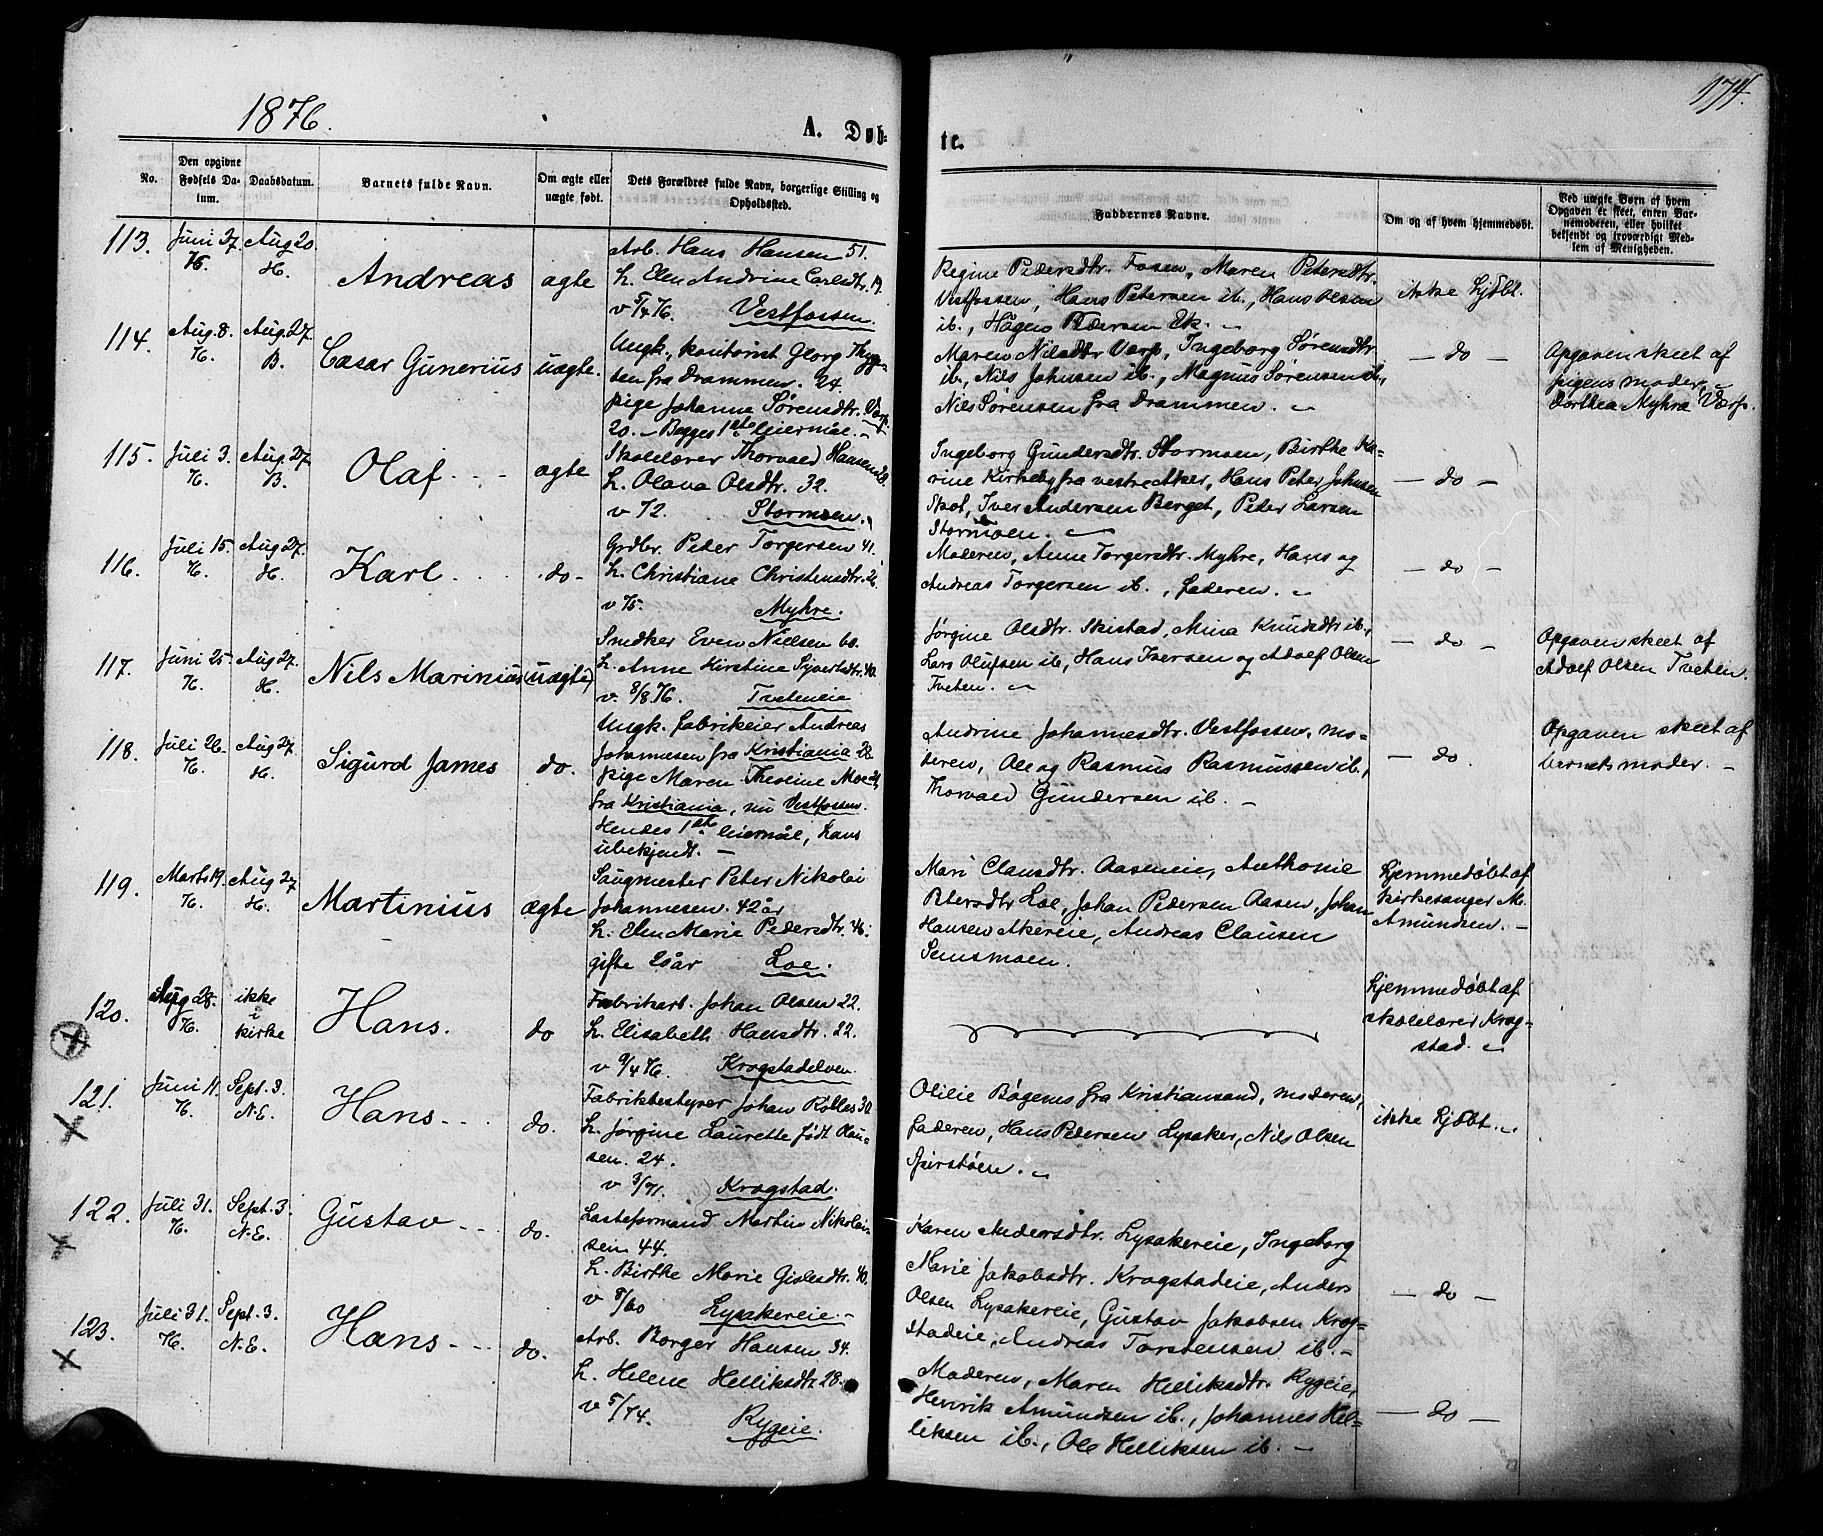 1876.
174.
A. Døb-
te.
No.
Den opgivne
Fødsels Da-
tum.
Daabsdatum.
Barnets fulde Navn.
Om ægte eller
uægte født.
Dets Forældres fulde Navn, borgerlige Stilling og
Opholdssted.
Faddernes Navne.
Om og af hvem hjemmedøbt.
Ved uægte Børn af hvem
Opgaven er skeet, enten Bar-
nemoderen, eller hvilket
bekjendt og troværdigt Med-
lem af Menigheden.
113. Juni 27. Aug 20.
76. H.
Andreas ægte
Arb. Hans Hansen 51.
h. Elen Andrine Carlsdtr. 19.
v 5/4 76. Vestfossen.
Regine Pedersdtr. Fosen, Maren Petersdtr.
Vestfossen, Hans Petersen ib., Hans Olsen
ib., Hågen Pedersen Ek.
ikke hjdbt.
114. Aug. 8. Aug. 27.
76. B.
Cæsar Gunerius uægte.
Ungk., kontorist Georg Thyge-
sen fra Drammen. 24.
pige Johanne Sørensdtr. Værp
20. - Begges 1ste leiermål. -
Maren Nilsdtr Værp, Ingeborg Sørensdtr.
ib., Nils Johnsen ib., Magnus Sørensen ib.,
Nils Sørensen fra Drammen.
- do -
Opgaven skeet af
pigens moder,
Dorthea Myhre Værp.
115. Juli 3. Aug. 27.
76. B.
Olaf. ægte
Skolelærer Thorvald Hansen 28.
h. Olava Olsdtr. 32.
v 72. Stormoen.
Ingeborg Gundersdtr. Stormoen, Birthe Ka-
rine Kirkeby fra vestre Aker, Hans Peter Johnsen
Skot, Iver Andersen Berget, Peder Larsen
Stormoen.
- do -
116. Juli 15. Aug 27.
76. H.
Karl. do -
Grdbr. Peder Torgersen 41.
h. Christiane Christensdtr. 26.
v 75. Myhre.
Moderen, Anne Torgersdtr. Myhre, Hans og
Andreas Torgersen ib., faderen.
- do -
117. Juni 25. Aug 27.
76. H.
Nils Marinius (uægte)
Snedker Even Nielsen 60.
h. Anne Kirstine Syversdtr. 40.
v. 8/8 76. Tveteneie
Jørgine Olsdtr. Skistad, Mina Knudsdtr ib.,
Lars Olufsen ib., Hans Iversen og Adolf Olsen
Tveten.
- do -
Opgaven skeet af
Adolf Olsen Tveten.
118. Juli 26. Aug 27.
76. H.
Sigurd James do.
Ungk. fabrikeier Andreas
Johannesen fra Kristiania 28.
pige Maren Theoline Moe 21,
fra Kristiania, nu Vestfossen.
Hendes 1ste leiermål, hans
ubekjendt. -
Andrine Johannesdtr. Vestfossen, mo-
deren, Ole og Rasmus Rasmussen ib.,
Thorvald Gundersen ib. -
- do.
Opgaven skeet af
barnets moder. -
119. Marts 19. Aug 27.
76. H.
Martinius ægte
Saugmester Peter Nikolai
Johannesen. 42 år
h. Elen Marie Pedersdtr. 46.
gifte 20 år Loe.
Mari Clausdtr. Aaseneie, Anthonie
Petersdtr Loe, Johan Pedersen Aasen, Johan
Hansen Akereie, Andreas Clausen
Semsmoen.
hjemmedøbt af
kirkesanger M.
Amundsen. -
120. Aug 28. ikke
76. i
kirke
Hans. do
Fabrikarb. Johan Olsen 22.
h. Elisabeth Hansdtr. 22.
v 9/4 76. Krogstadelven.
hjemmedøbt af
skolelærer Krog-
stad.
121. Juni 11. Sept. 3.
76. N.E.
Hans. do.
Fabrikbestyrer Johan Rolles 30
h. Jørgine Laurette født Clau-
sen. 24.
v 3/71. Krogstad.
Olilie Bøgenes fra Kristiansand, moderen,
faderen, Hans Pedersen Lysaker, Nils Olsen
Spirstøen.
ikke hjdbt.
122. Juli 31. Sept. 3.
76. N.E.
Gustav do.
Lasteformand Martin Nikolai-
sen 44.
h. Birthe Marie Gislesdtr. 40.
v 5/60 Lysakereie. -
Karen Andersdtr. Lysakereie, Ingeborg
Marie Jakobsdtr. Krogstadeie, Anders
Olsen Lysakereie, Gustav Jakobsen Krog-
stadeie, Andreas Torstensen ib. -
- do -
123. Juli 31. Sept. 3.
76. N.E.
Hans do.
Arb. Borger Hansen 34.
h. Helene Helliksdtr 28.
v 5/74. Rygeie.
Moderen, Maren Helliksdtr. Rygeie,
Henrik Amundsen ib., Johannes Hel-
liksen ib., Ole Helliksen ib. -
- do -